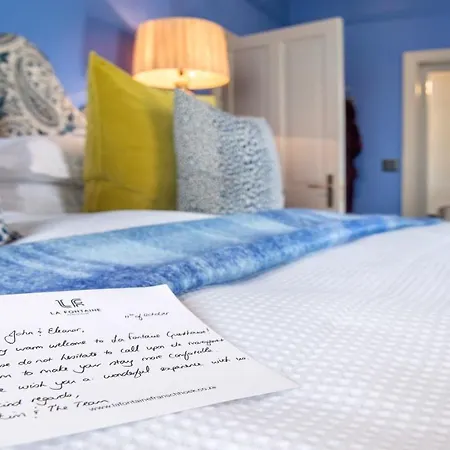 LF
LA FONTAINE
11th of October
John & Eleanor,
warm welcome to La Fontaine Guesthouse!
do not hesitate to call upon the
to make your stay more comfortable
wish you a wonderful experience with us
kind regards,
& The Team
www.lafontainefranschhoek.co.za